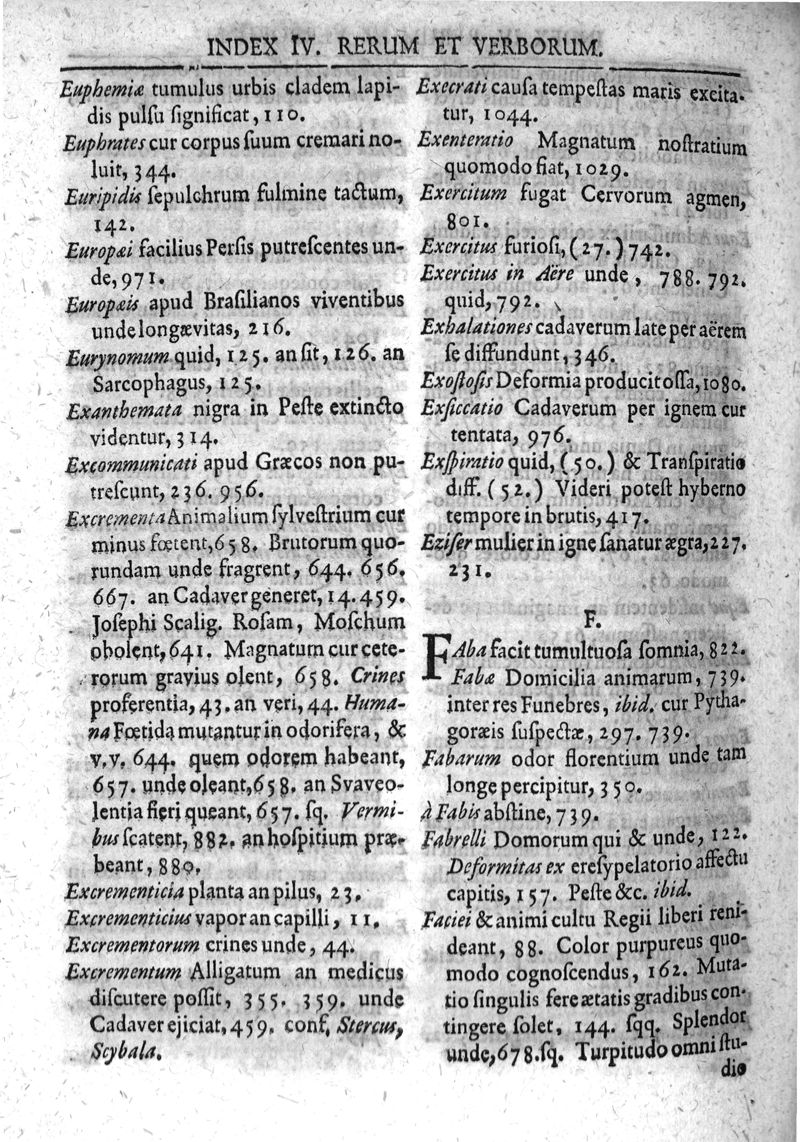 INDEX IV. RERUM ET VERBORUM.
Euphemiæ tumulus urbis cladem lapi-
dis pulſu ſignificat, 110.
Euphrates cur corpus ſuum cremari no-
luit, 344.
Euripidis ſepulchrum fulmine tactum,
142.
Europæi facilius Perſis putreſcentes un-
de, 971.
Europæis apud Braſilianos viventibus
unde longævitas, 216.
Eurynomum quid, 125. an ſit, 126. an
Sarcophagus, 125.
Exanthemata nigra in Peſte extincto
videntur, 314.
Excommunicati apud Græcos non pu-
treſcunt, 236. 956.
Excrementa Animalium ſylveſtrium cur
minus fœtent, 658. Brutorum quo-
rundam unde fragrent, 644. 656.
667. an Cadaver generet, 14. 459.
Joſephi Scalig. Roſam, Moſchum
obolent, 641. Magnatum cur cete-
rorum gravius olent, 658. Crines
proferentia, 43. an veri, 44. Huma-
na Fœtida mutantur in odorifera, &
v.v. 644. quem odorem habeant,
657. unde oleant, 658. an Svaveo-
lentia fieri queant, 657. ſq. Vermi-
bus ſcatent, 882. an hoſpitium præ-
beant, 880.
Excrementicia planta an pilus, 23.
Excrementicius vapor an capilli, 11.
Excrementorum crines unde, 44.
Excrementum Alligatum an medicus
diſcutere poſſit, 355. 359. unde
Cadaver ejiciat, 459. conf. Stercus,
Scybala.
Execrati cauſa tempeſtas maris excita-
tur, 1044.
Exenteratio Magnatum noſtratium
quomodo fiat, 1029.
Exercitum fugat Cervorum agmen,
801.
Exercitus furioſi, (27.) 742.
Exercitus in Aëre unde, 788. 792.
quid, 792.
Exhalationes cadaverum late per aërem
ſe diffundunt, 346.
Exoſtoſis Deformia producit oſſa, 1080.
Exſiccatio Cadaverum per ignem cur
tentata, 976.
Exſpiratio quid, (50.) & Tranſpiratio
diff. (52.) Videri poteſt hyberno
tempore in brutis, 417.
Eziſer mulier in igne ſanatur ægra, 227.
231.
F.
FAba facit tumultuoſa ſomnia, 822.
Fabæ Domicilia animarum, 739.
inter res Funebres, ibid. cur Pytha-
goræis ſuſpectæ, 297. 739.
Fabarum odor florentium unde tam
longe percipitur, 350.
à Fabis abſtine, 739.
Fabrelli Domorum qui & unde, 122.
Deformitas ex ereſypelatorio affectu
capitis, 157. Peſte &c. ibid.
Faciei & animi cultu Regii liberi reni-
deant, 88. Color purpureus quo-
modo cognoſcendus, 162. Muta-
tio ſingulis fere ætatis gradibus con-
tingere ſolet, 144. ſqq. Splendor
unde, 678. ſq. Turpitudo omni ſtu-
dio